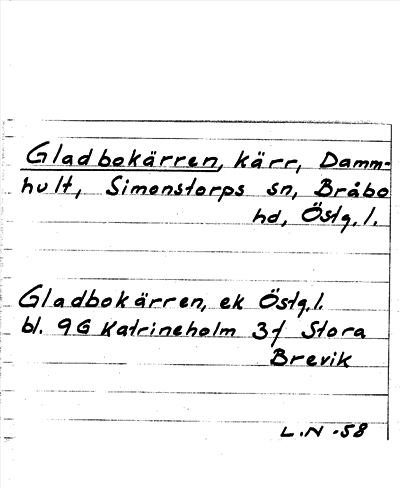 Gladbokärren, kärr, Damm-
hult, Simonstorps sn, Bråbo
hd, Östg. l.
Gladbokärren, ek Östg. l.
bl. 9G Katrineholm 3f Stora
Brevik
L.N -58